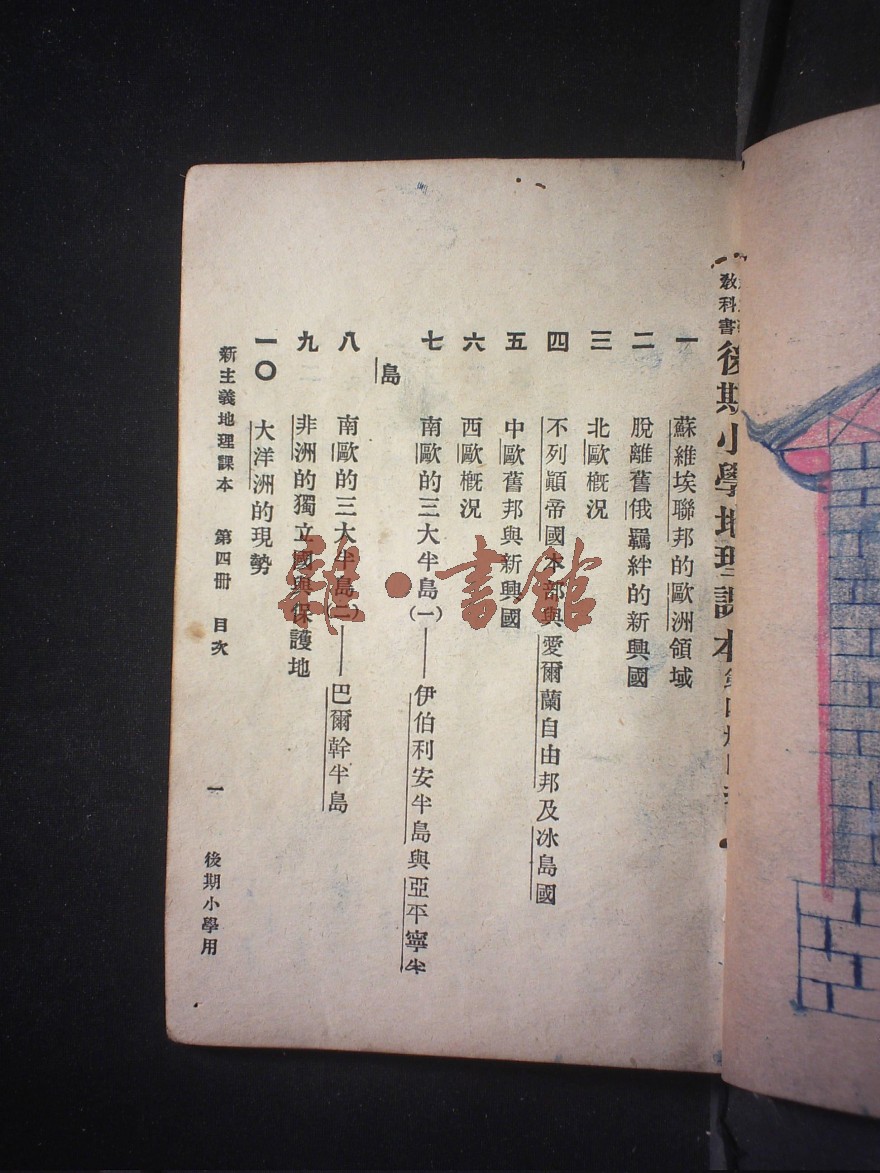 教科書 後期小學地理課本 第四册目次
一 蘇維埃聯邦的歐洲領域
二 脫離舊俄羈絆的新興國
三 北歐槪況
四 不列顚帝國本部與愛爾蘭自由邦及冰島國
五 中歐舊邦與新興國
六 西歐槪況
七 南歐的三大半島(一)——伊伯利安半島與亞平寧半
島
八 南歐的三大半島(二)——巴爾幹半島
九 非洲的獨立國與保護地
一〇 大洋洲的現勢
新主義地理課本 第四册 目次 一 後期小學用
雜·書館